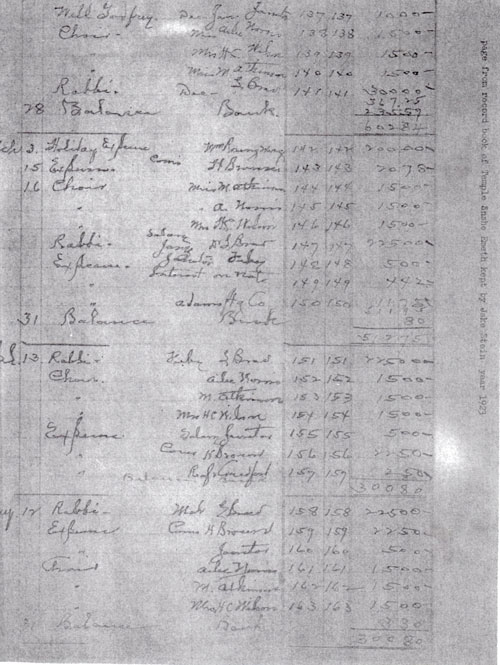 Well Godfrey Dec Jan Janitor 137 137 1000
Choir Miss Alice Norris 138 138 1500
Mrs HC Nelson 139 139 1500
" Miss M Atkinson 140 140 1500
Rabbi. Dec L Brav 141 141 30000
28 Balance Bank
60284
3. Holiday Expense 142 142 20000
15 Expense Com H Brown 143 143 2078
16 Choir Miss M Atkinson 144 144 1500
" A Norris 145 145 1500
" Mrs HC Nelson 146 146 1500
Rabbi - Salary L Brav 147 147 22500
Expense Janitor Feby 148 148 500
" Interest on Note 149 149
" Adams & Co 150 150
31 Balance Bank
13. Rabbi - Feby L Brav 151 151 22500
Choir. Alice Norris 152 152 1500
" M. Atkinson 153 153 1500
" Mrs HC Nelson 154 154 1500
Expense Salary Janitor 155 155 500
" Com H Brown 156 156 2250
" 157 157 250
Balance
30080
12 Rabbi - Mch L Brav 158 158 22500
Expense Com H Brown 159 159 2250
" Janitor 160 160 500
Choir Alice Norris 161 161 1500
" M. Atkinson 162 162 1500
" Mrs HC Nelson 163 163 1500
31 Balance Bank 330
30080
page from record book of Temple Anshe Emeth kept by Jake Stein year 1923